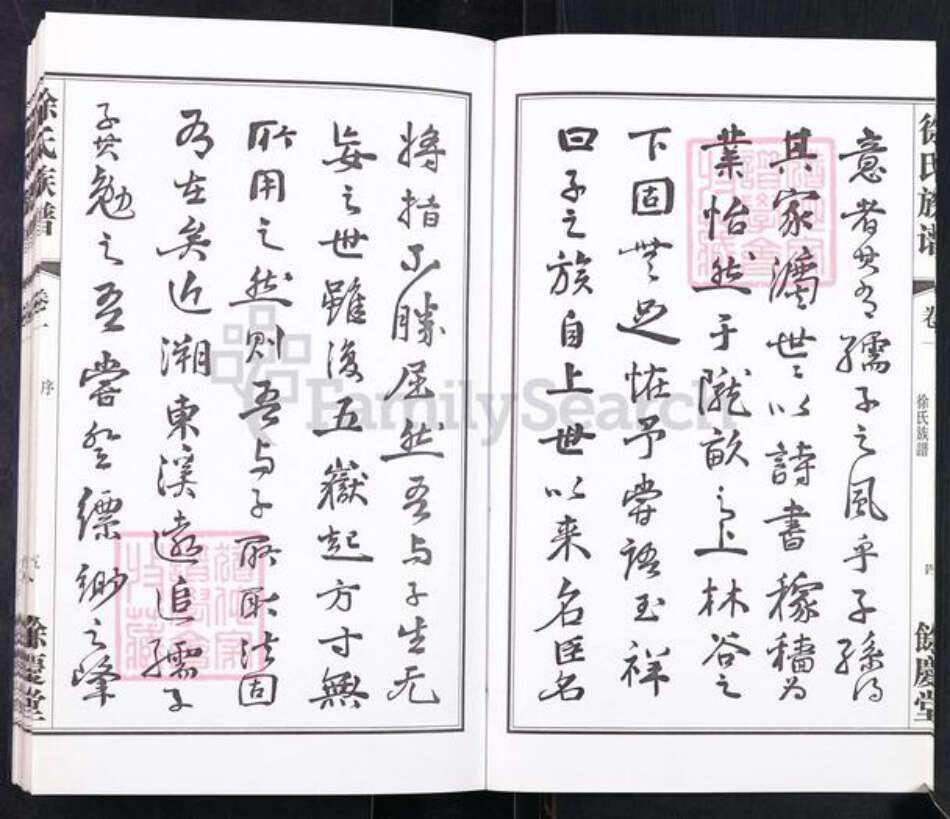 徐氏族譜
卷一
徐氏族譜
四
餘慶堂
意者其有孺子之風乎子孫得
其家濤世以詩書稼穡為
業怡然于隴畝之上林谷之
下固無足怪予嘗語玉祥
曰子之族自上世以来名臣名
將指不勝屈然吾与子生无
妄之世雖復五嶽起方寸無
所用之然則吾与子所取法固
有在矣近溯東溪遠追孺子
子其勉之吾嘗登縹緲之峰
徐氏族譜
卷一
序
餘慶堂
FamilySearch